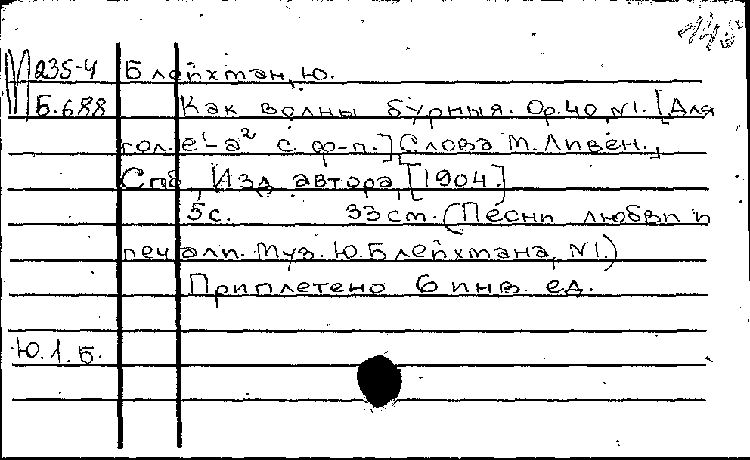 145
М 235-4 Блейхман, Ю.
Б.688 Как волны бурныя. Ор.40, №1. [Для
гол. e¹-a² с ф-п.] [Слова М. Ливен.]
Спб, Изд. автора, [1904.]
5с. 33 см. (Песни любви и
печали. Муз. Ю. Блейхмана, №1.)
Приплетено 6 инв. ед.
Ю.1.Б.